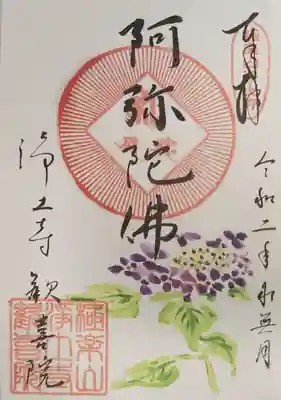 奉拝
令和二年水無月
阿弥陀佛
浄土寺
歓喜院
極楽山
浄土寺